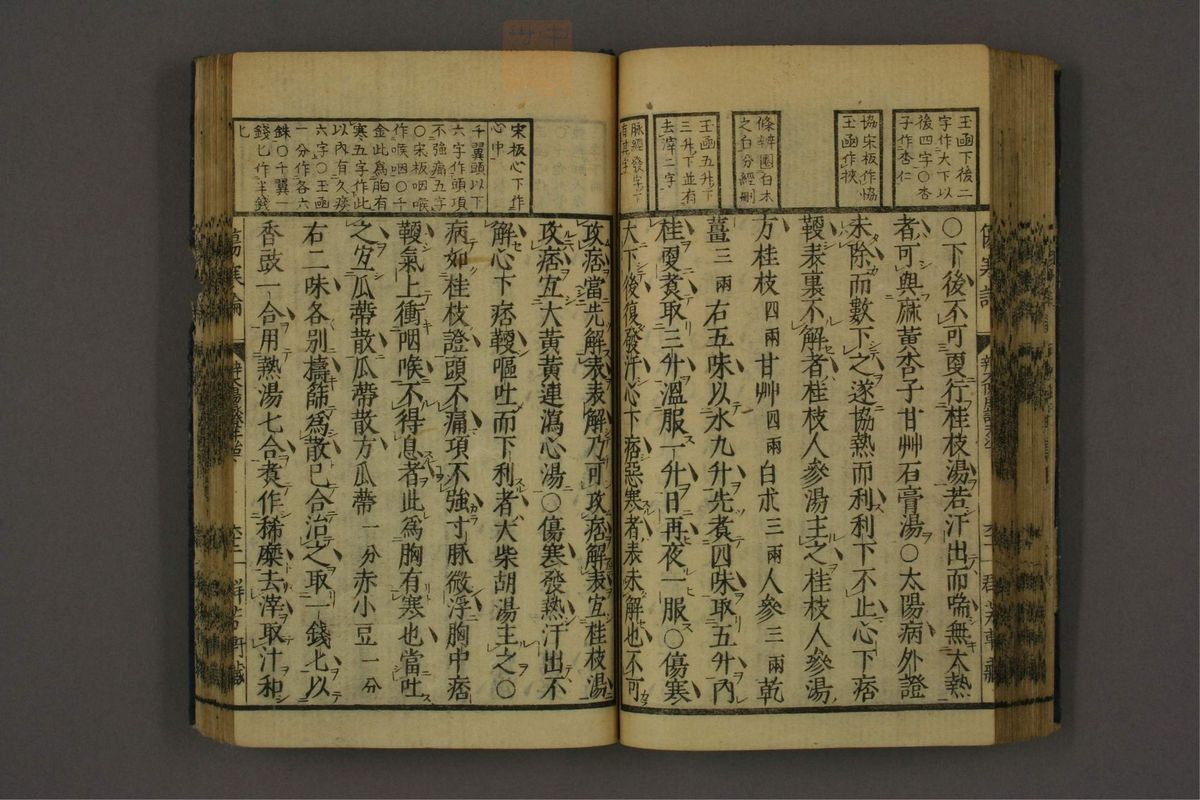 玉函下後二
字作大下以
後四字〇杏
子作杏仁
協宋板作協
玉函作挾
條辨圈白朮
之白分經刪
玉函五升下
三升下並有
去滓二字
脈經發字下
有其字
〇下後不可更行桂枝湯若汗出而喘無大熱
者可與麻黃杏子甘艸石膏湯〇太陽病外證
未除而數下之遂協熱而利利下不止心下痞
鞕表裏不解者桂枝人參湯主之桂枝人參湯
方桂枝四兩甘艸四兩白朮三兩人參三兩乾
薑三兩右五味以水九升先煑四味取五升內
桂更煑取三升溫服一升日再夜一服〇傷寒
大下後復發汗心下痞惡寒者表未解也不可
攻痞當先解表表解乃可攻痞解表宜桂枝湯
攻痞宜大黃黃連瀉心湯〇傷寒發熱汗出不
解心下痞鞕嘔吐而下利者大柴胡湯主之〇
病如桂枝證頭不痛項不強寸脈微浮胸中痞
鞕氣上衝咽喉不得息者此為胸有寒也當吐
之宜瓜蔕散瓜蔕散方瓜蔕一分赤小豆一分
右二味各別擣篩為散已合治之取一錢匕以
香豉一合用熱湯七合煑作稀糜去滓取汁和
宋板心下作
心中
千翼頭以下
六字作頭項
不強痛五字
〇宋板咽喉
作喉咽〇千
金此為胸有
寒五字作此
以內有久痰
六字〇玉函
一分作各六
銖〇千翼一
錢匕作半錢
匕
傷寒論